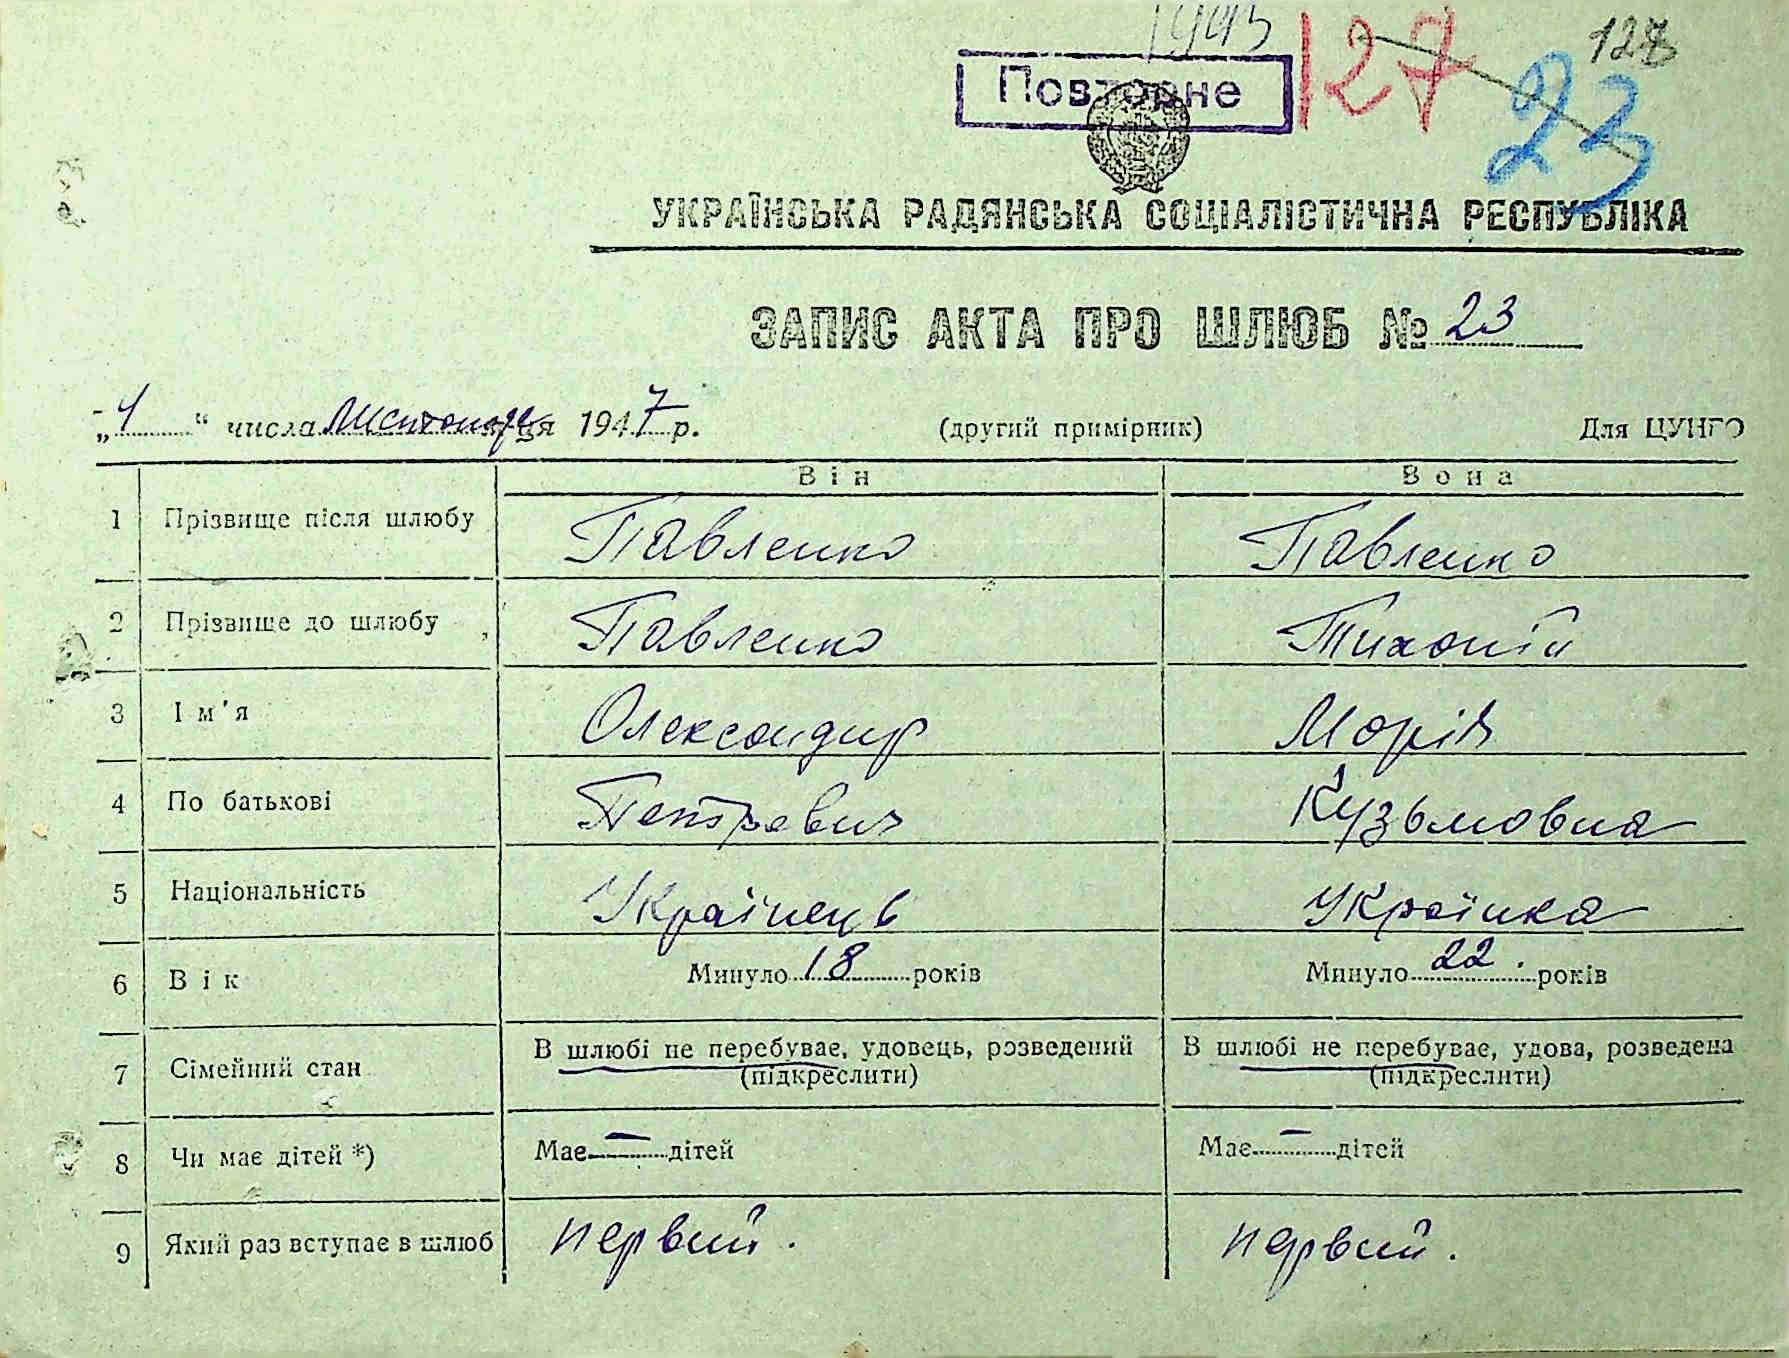 1943
127
128
Повторне
23
УКРАЇНСЬКА РАДЯНСЬКА СОЦІАЛІСТИЧНА РЕСПУБЛІКА
ЗАПИС АКТА ПРО ШЛЮБ № 23
„ 1 “ числа листопада ця 1947 р. (другий примірник) Для ЦУНГО
Він Вона
1 Прізвище після шлюбу Павленко Павленко
2 Прізвище до шлюбу Павленко Тихоній
3 Ім'я Олександир Марія
4 По батькові Петрович Кузьмовна
5 Національність Українець Українка
6 Вік Минуло 18 років Минуло 22 років
7 Сімейний стан В шлюбі не перебуває, удовець, розведений В шлюбі не перебуває, удова, розведена
(підкреслити) (підкреслити)
8 Чи має дітей *) Має — дітей Має — дітей
9 Який раз вступає в шлюб первий. первий.